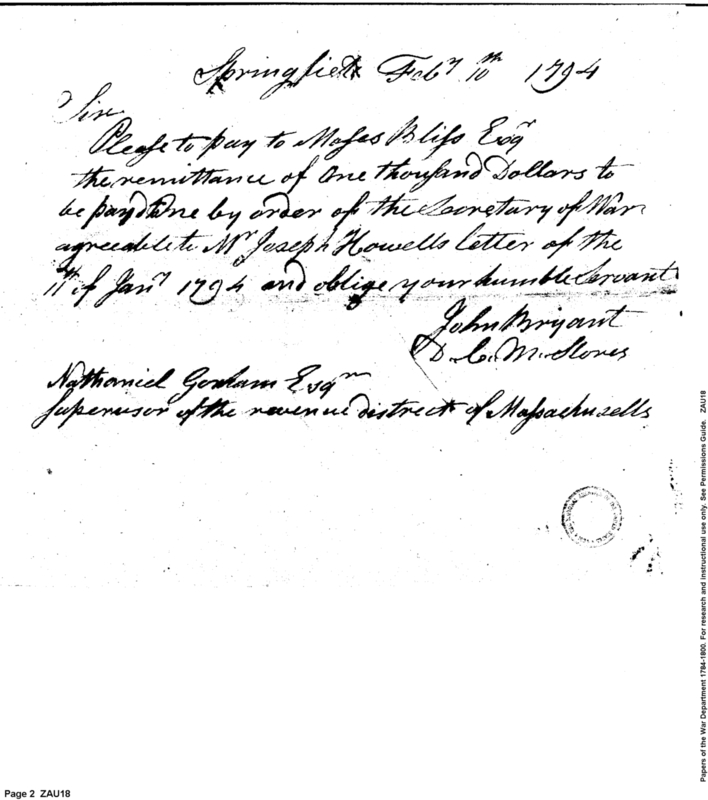 Springfield Feby 10th 1794
Sir
Please to pay to Moses Bliss Esqr
the remittance of One thousand Dollars to
be payd me by order of the Secretary of War
agreeable to Mr Joseph Howells letter of the
11th of Jany 1794 and oblige your humble Servant
John Bryant
D. C. M. Stores
Nathaniel Gorham Esqr
Supervisor of the revenue district of Massachusetts
Papers of the War Department 1784-1800. For research and instructional use only. See Permissions Guide. ZAU18
Page 2 ZAU18